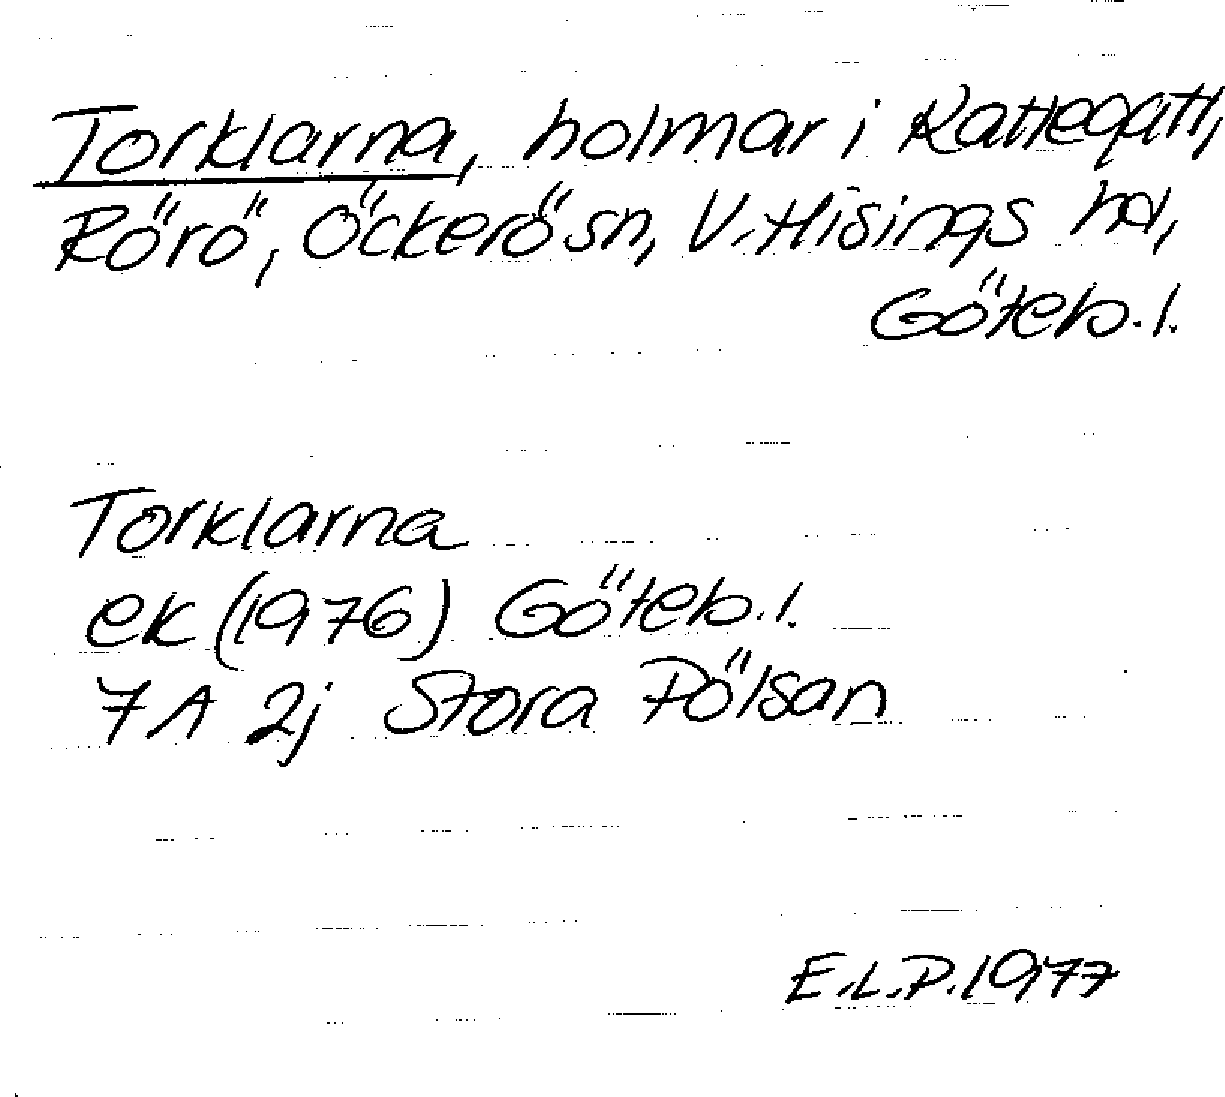 Torklarna, holmar i Kattegatt,
Rörö, Öckerö sn, V. Hisings hd,
Göteb. l.
Torklarna
ek (1976) Göteb. l.
7A 2j Stora Pölsan
E.L.P. 1977